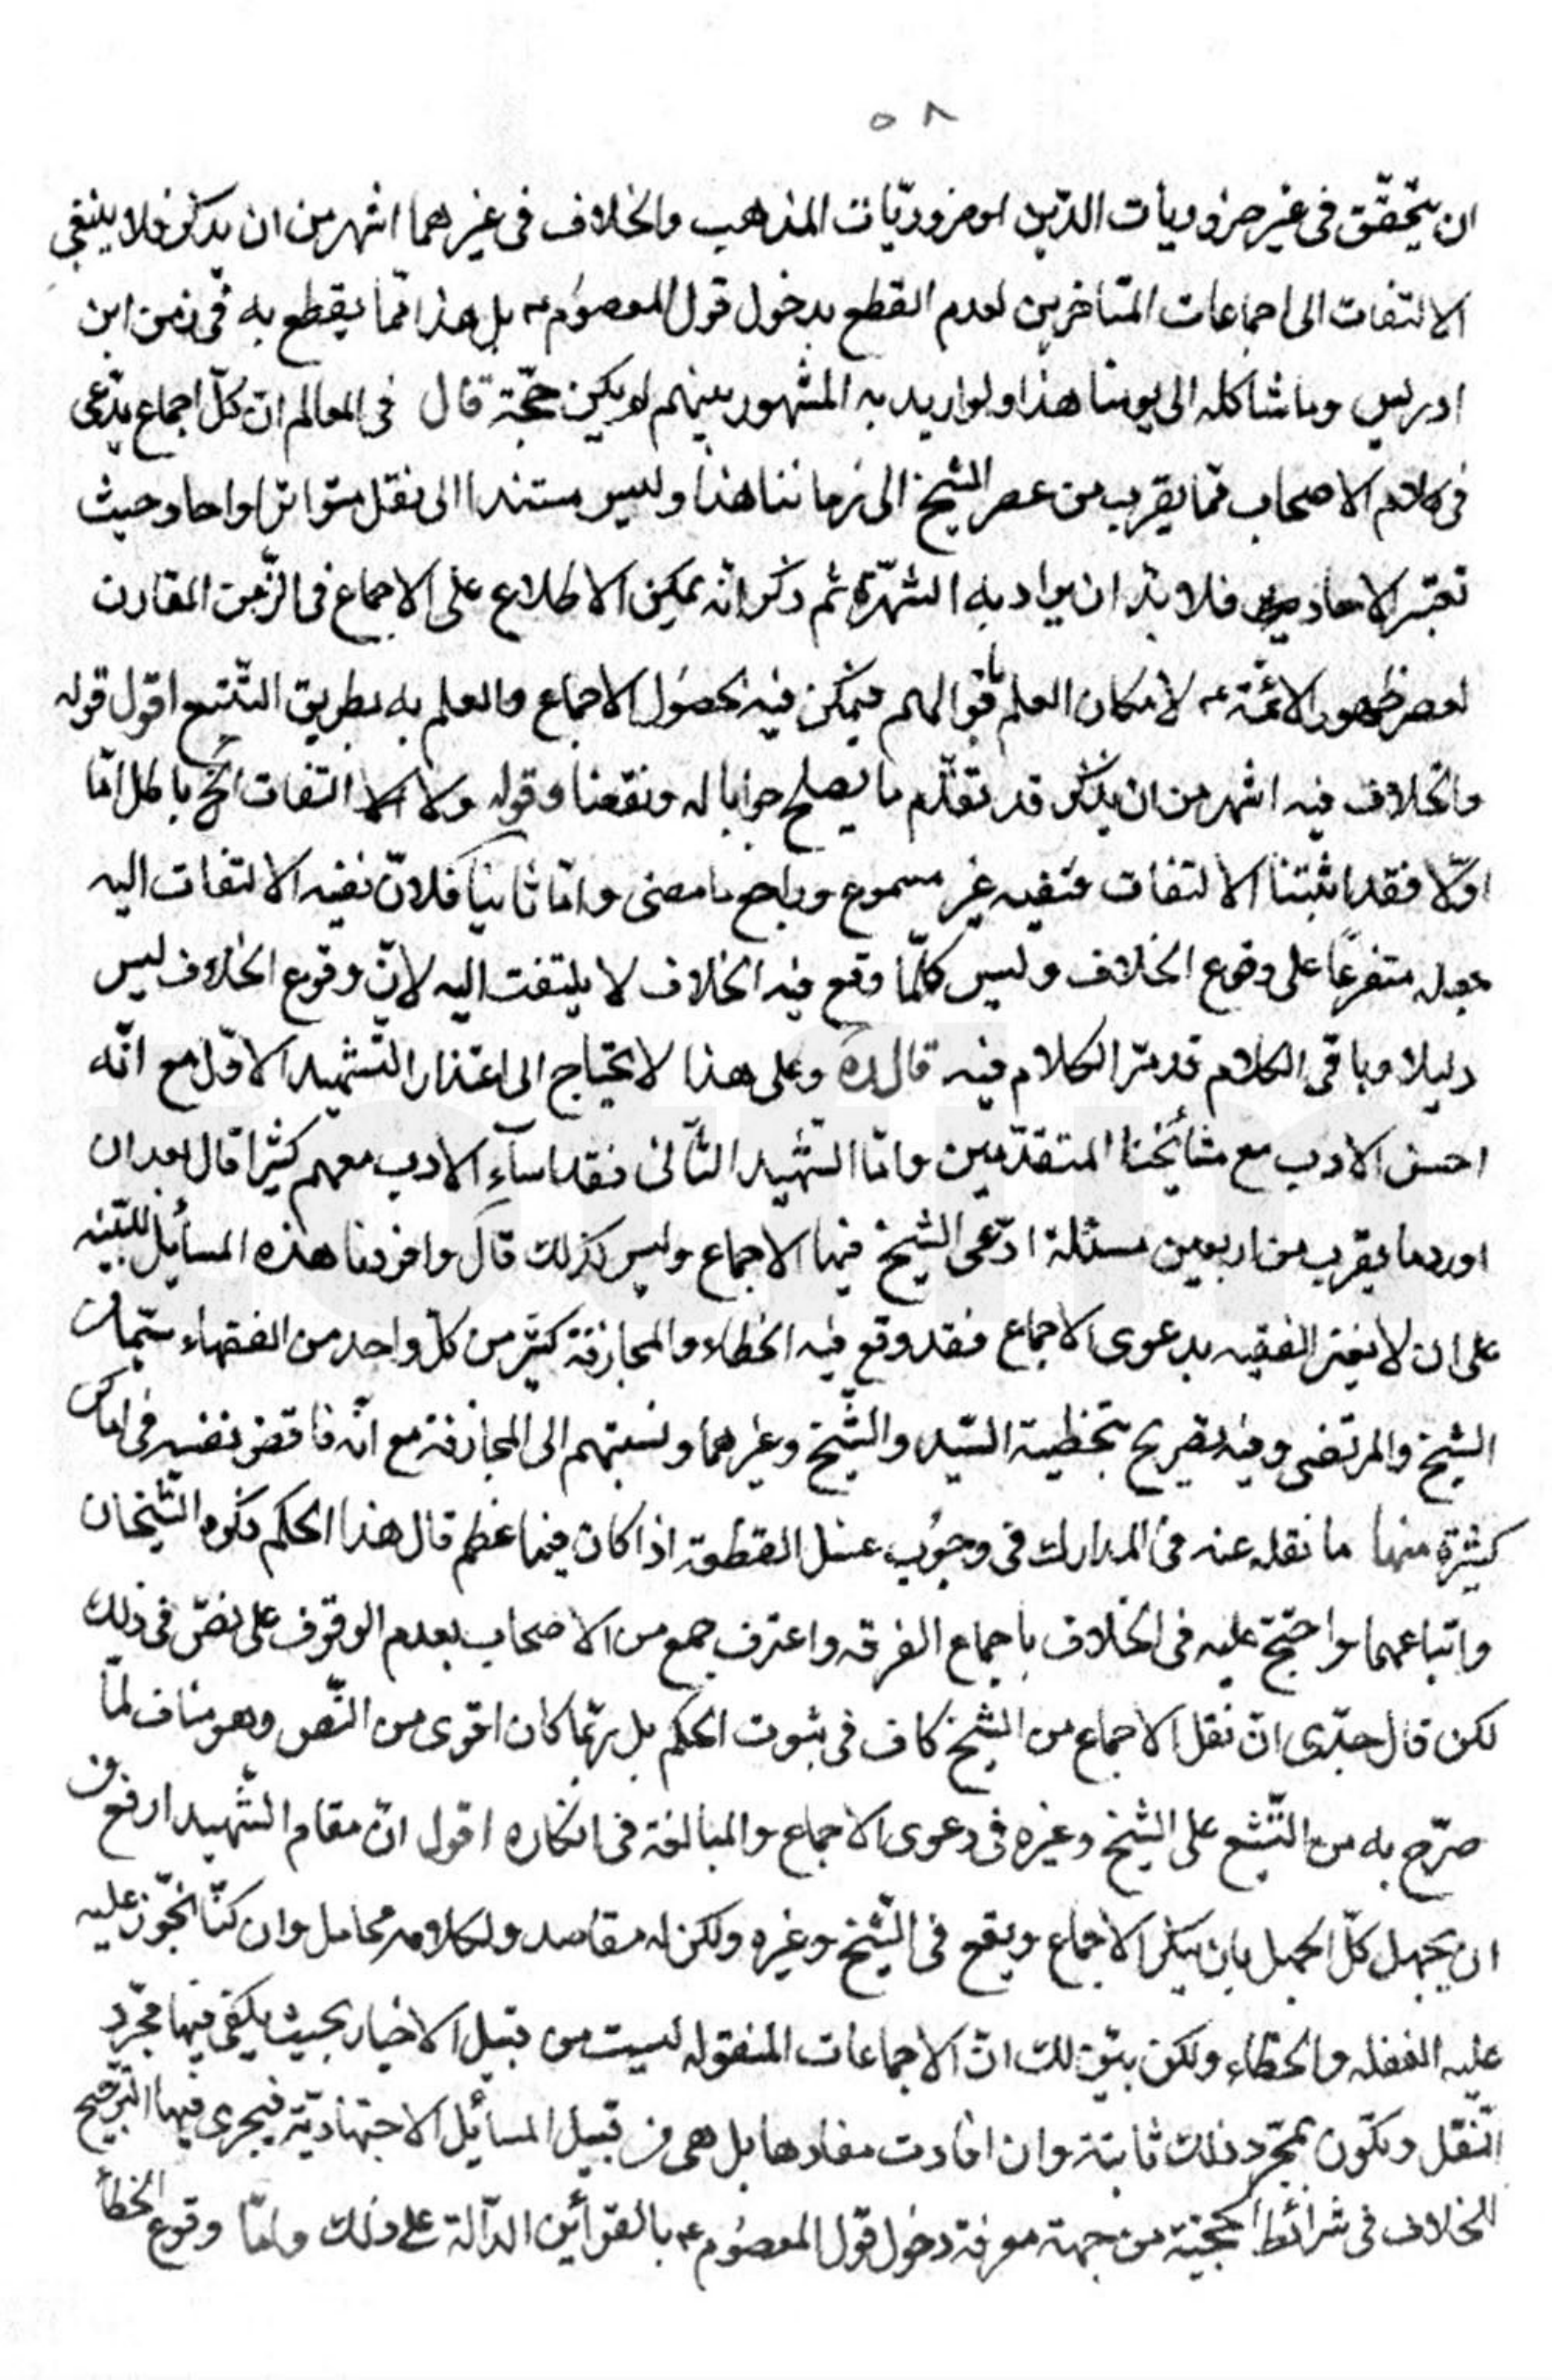 ٥٨
ان يتحقّق فى غير ضروريات الدّين او ضروريّات المذهب والخلاف فى غيرهما اشهر من ان يذكر فلا ينبغى
الالتفات الى اجماعات المتاخرين لعدم القطع بدخول قول المعصوم ع بل هذا ممّا يقطع به فى زمن ابن
ادريس وما شاكله الى يومنا هذا ولو اريد به المشهور بينهم لم يكن حجّة قال فى المعالم انّ كلّ اجماع يدّعى
فى كلام الاصحاب ممّا يقرب من عصر الشيخ الى زماننا هذا وليس مستندا الى نقل متواتر او احاد حيث
تعتبر الاحاد فلا بدّ ان يراد به الشهرة ثم ذكر انّه يمكن الاطلاع على الاجماع فى الزّمن المقارن
لعصر ظهور الائمّة ع لامكان العلم باقوالهم فيمكن فيه حصول الاجماع والعلم به بطريق التّتبع اقول قوله
والخلاف فيه اشهر من ان يذكر قد تقدّم ما يصلح جوابا له ونقضا وقوله ولا الالتفات الخ باطل امّا
اوّلا فقد اثبتنا الالتفات فنفيه غير مسموع وراجع ما مضى وامّا ثانيا فلانّ نفيه الالتفات اليه
جعله متفرعاً على وقوع الخلاف وليس كلّما وقع فيه الخلاف لا يلتفت اليه لانّ وقوع الخلاف ليس
دليلا وباقى الكلام قد مرّ الكلام فيه قال ره وعلى هذا لا يحتاج الى اعتذار الشّهيد الاوّل مع انّه
احسن الادب مع مشائخنا المتقدّمين وامّا الشّهيد الثّانى فقد اساء الادب معهم كثيرا قال بعد ان
اورد ما يقرب من اربعين مسئلة ادّعى الشيخ فيها الاجماع وليس كذلك قال وافردنا هذه المسايل للتّنبيه
على ان لا يغتر الفقيه بدعوى الاجماع فقد وقع فيه الخطاء والمجازفة كثير من كلّ واحد من الفقهاء سيّما من
الشيخ والمرتضى وفيه تصريح بتخطية السّيد والشّيخ وغيرهما ونسبتهم الى المجازفة مع انّه ناقض نفسه فى اماكن
كثيرة منها ما نقله عنه فى المدارك فى وجوب غسل القطعة اذا كان فيها عظم قال هذا الحكم ذكره الشّيخان
واتباعهما واحتجّ عليه فى الخلاف باجماع الفرقه واعترف جمع من الاصحاب بعدم الوقوف على نصّ فى ذلك
لكن قال جدّى انّ نقل الاجماع من الشيخ كاف فى ثبوت الحكم بل ربّما كان اقوى من النّص وهو مناف لما
صرّح به من التّشنع على الشيخ وغيره فى دعوى الاجماع والمبالغة فى انكاره اقول انّ مقام الشّهيد ارفع من
ان يجهل كلّ الجهل بان ينكر الاجماع ويقع فى الشّيخ وغيره ولكن له مقاصد ولكلامه محامل وان كنّا نجّوز عليه
عليه الغفله والخطاء ولكن بيّن لك انّ الاجماعات المنقوله ليست من قبيل الاخبار بحيث يكفى فيها مجّرد
النّقل وتكون بمجّرد ذلك ثابتة وان افادت مفادها بل هى من قبيل المسائل الاجتهاديّة فيجرى فيها التّرجيح
للخلاف فى شرائط الحجيّة من جهة معرفة دخول قول المعصوم ع بالقرائن الدّالة على ذلك وامّا وقوع الخطأ